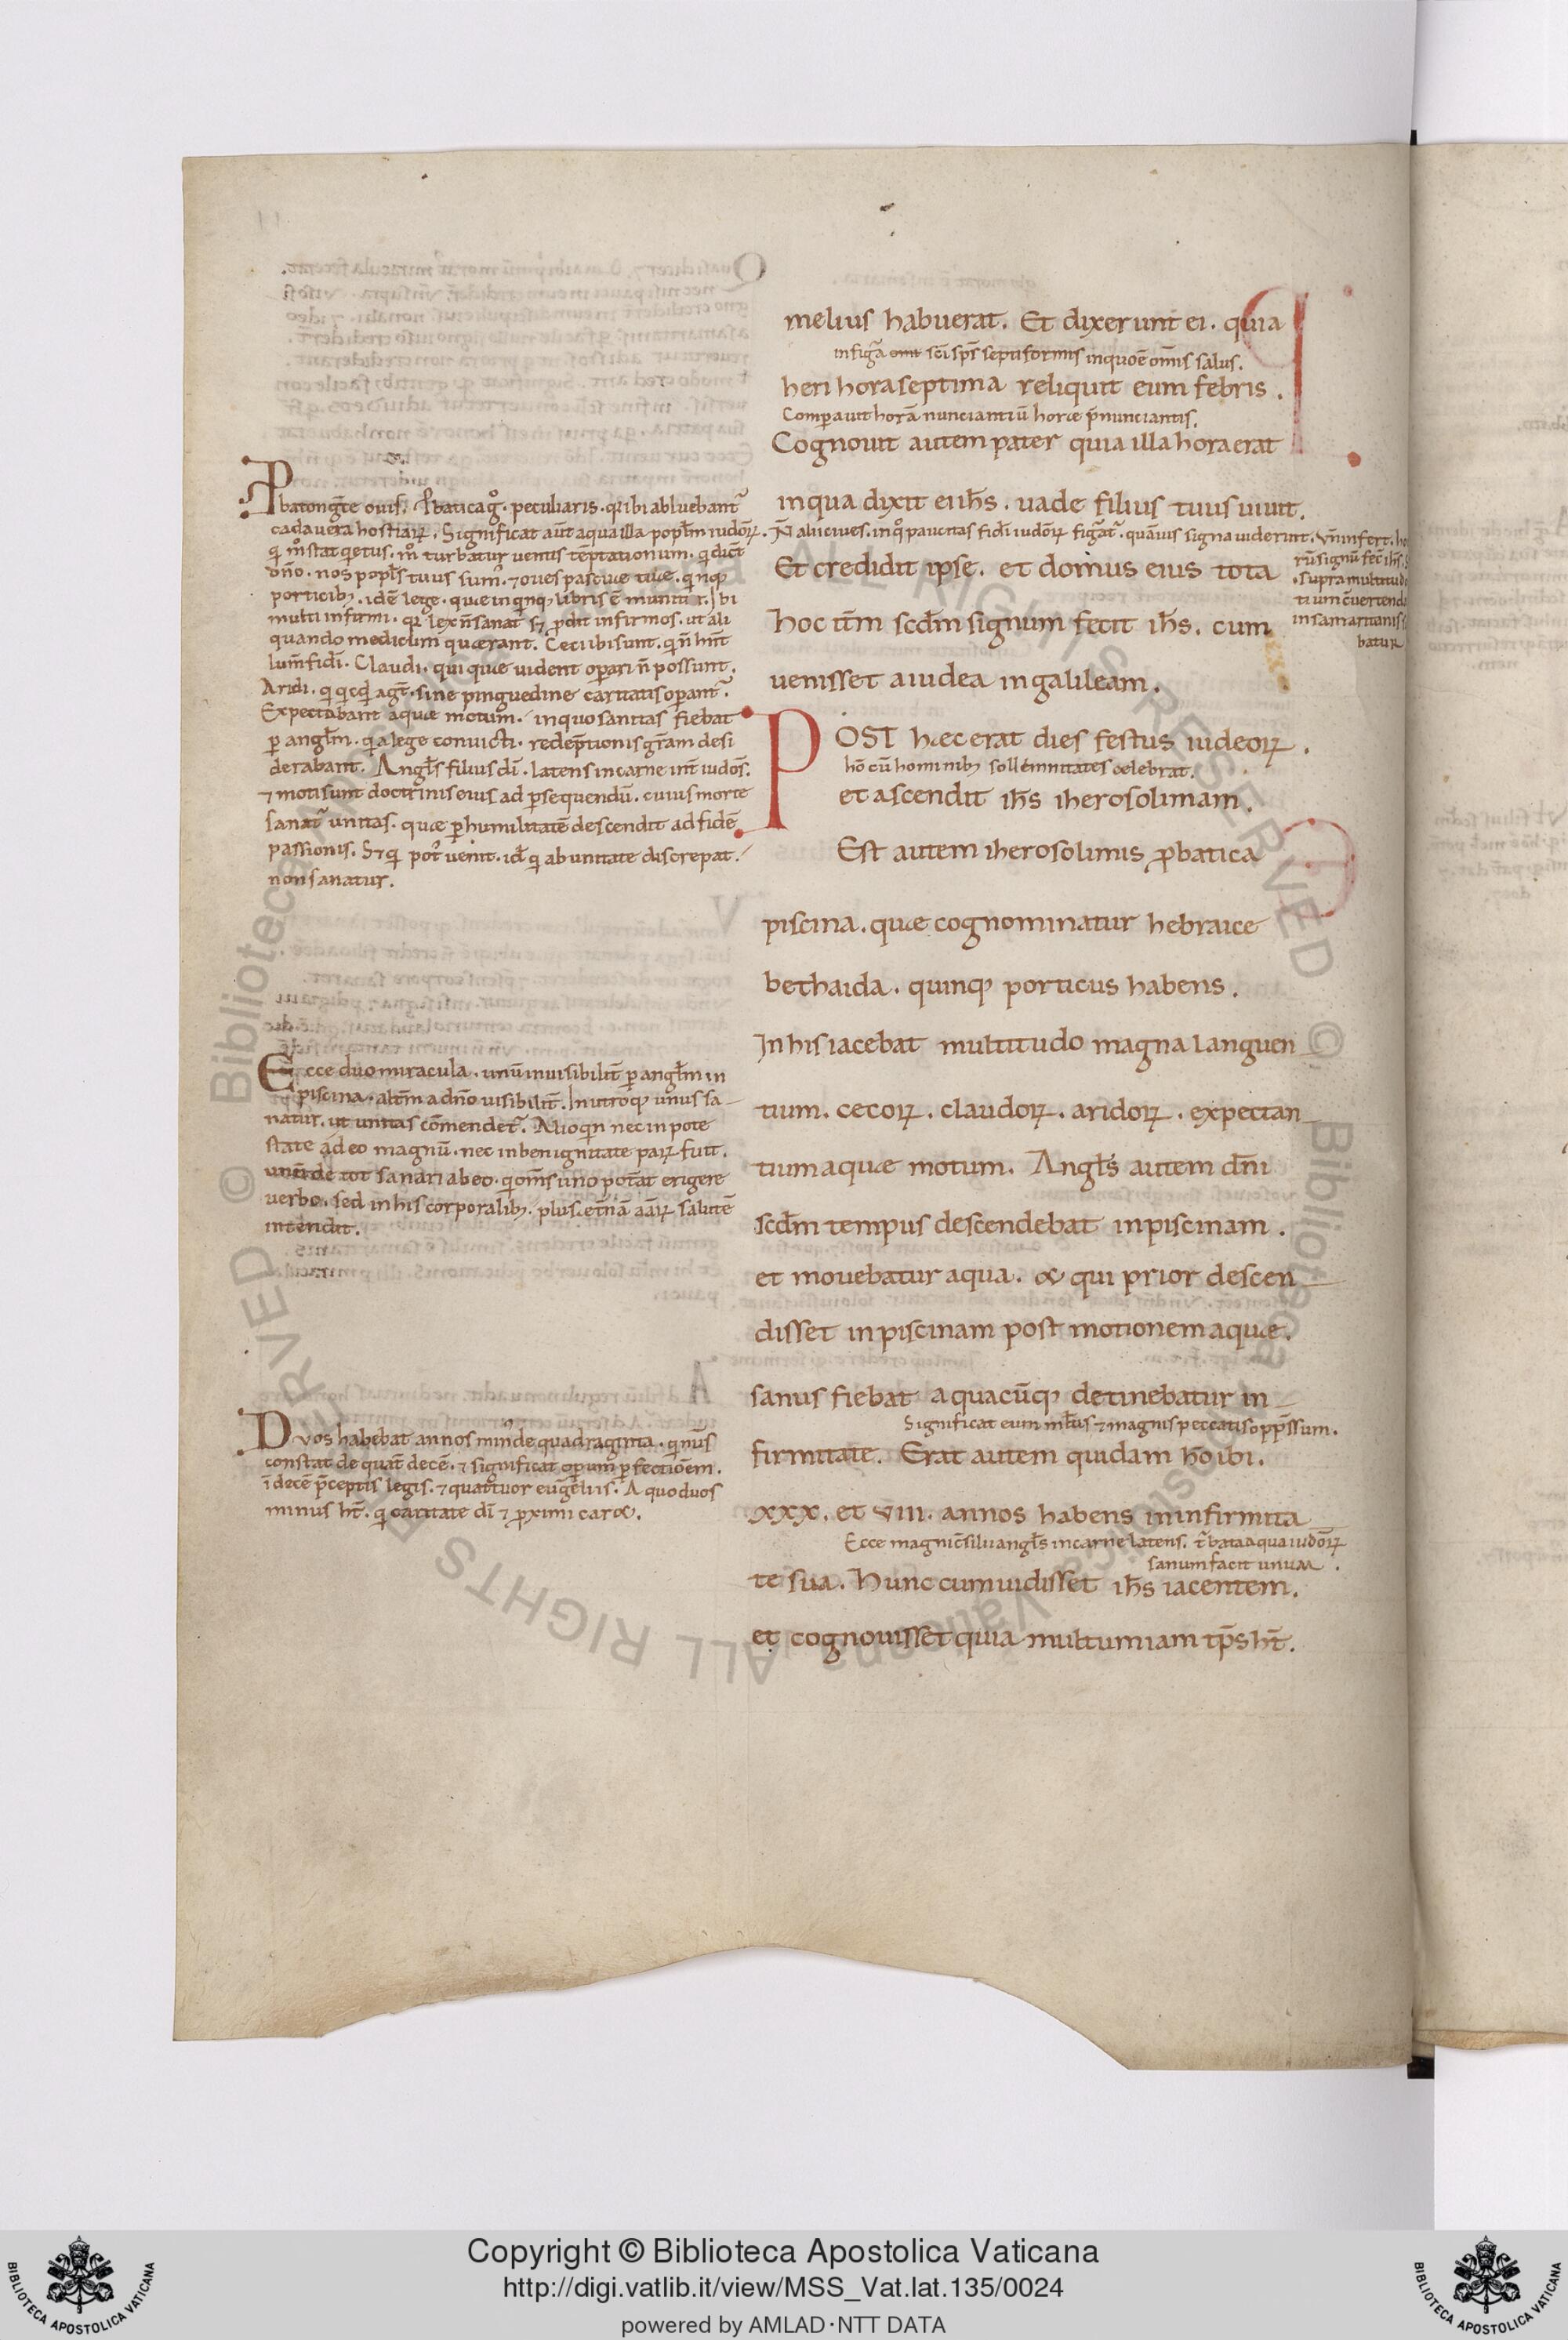 melius habuerat. Et dixerunt ei. quia
in figa sci sps septiformis in quo ē omis salus.
heri hora septima reliquit eum febris.
Comparauit horā nunciantiū horæ p̄nunciantis.
Cognouit autem pater quia illa hora erat
in qua dixit ei ih̄s. uade filius tuus uiuit.
Et credidit ipse. et domus eius tota
hoc it̄m scd̄m signum fecit ih̄s. cum
uenisset a iudea in galileam.
POST hæc erat dies festus iudeoꝝ.
hō cū hominibꝫ sollemnitates celebrat.
et ascendit ih̄s iherosolimam.
Est autem iherosolimis ꝓbatica
piscina. quæ cognominatur hebraice
bethaida. quinqꝫ porticus habens.
In his iacebat multitudo magna languen
tium. cecoꝝ. claudoꝝ. aridoꝝ. expectan
tium aquæ motum. Angl̄s autem dn̄i
scd̄m tempus descendebat in piscinam.
et mouebatur aqua. & qui prior descen
disset in piscinam post motionem aquæ.
sanus fiebat a quacūqꝫ detinebatur in
Significat eum multis ⁊ magnis peccatis opp̄ssum.
firmitate. Erat autem quidam hō ibi.
xxx. et viii. annos habens in infirmita
Ecce magni c̄silii angl̄s in carne latens. t̄bata aqua iudōꝝ
sanum facit unum.
te sua. Hunc cum uidisset ih̄s iacentem.
et cognouisset quia multum iam tp̄s ht̄.
cadauera hostiaꝝ. Significat aūt aqua illa popl̄m iudōꝝ.
dn̄o. nos popl̄s tuus sum᷒. ⁊ oues pascuæ tuæ. q̇nqꝫ
porticibꝫ. idē lege. quæ in q̇nqꝫ libris ē munitur. Ibi
multi infirmi. qͥ lex n̄ sanat sꝫ ꝓdit infirmos. ut ali
quando medicum quærant. Ceci ibi sunt. qͥ n̄ hn̄t
lum̄ fidi. Claudi. qui quæ uident oꝑari n̄ possunt.
Aridi. qͥ qͥcqͥd agt̄. sine pinguedine caritatis oꝑant᷑.
Expectabant aquæ motum. in quo sanitas fiebat
ꝑ angl̄m. qͥa lege conuicti. redēptionis gr̄am desi
derabant. Angl̄s filius dī. latens in carne int̄ iudos̄.
⁊ moti sunt doctrinis eius ad ꝑsequendū. cuius morte
sanat᷑ unitas. quæ ꝑ humilitatē descendit ad fidē
passionis. Sꝫ qͥ pot᷑ uenit. id̄ qͥ ab unitate discrepat.
non sanatur.
Ecce duo miracula. unū inuisibilit̄ ꝑ angl̄m in
piscina. altm̄ a dn̄o uisibilit̄. In utroqꝫ unus sa
natur. ut unitas cōmendet᷑. Alioqͥn nec in pote
state adeo magnū. nec in benignitate paꝝ fuit.
unū de tot sanari ab eo. qͥ om̄s uno pot̄at erigere
uerbo. sed in his corporalibꝫ. plus et̄nā aīaꝝ salutē
intendit.
Duos habebat annos min᷒ de quadraginta. qͥ nūs
constat de quat̄ decē. ⁊ significat oꝑum ꝑfectiōem.
ī decē p̄ceptis legis. ⁊ quattuor eūgeliis. A quo duos
minus ht̄. qͥ caritate dī ⁊ ꝓximi car&.
Copyright © Biblioteca Apostolica Vaticana
http://digi.vatlib.it/view/MSS_Vat.lat.135/0024
powered by AMLAD·NTT DATA